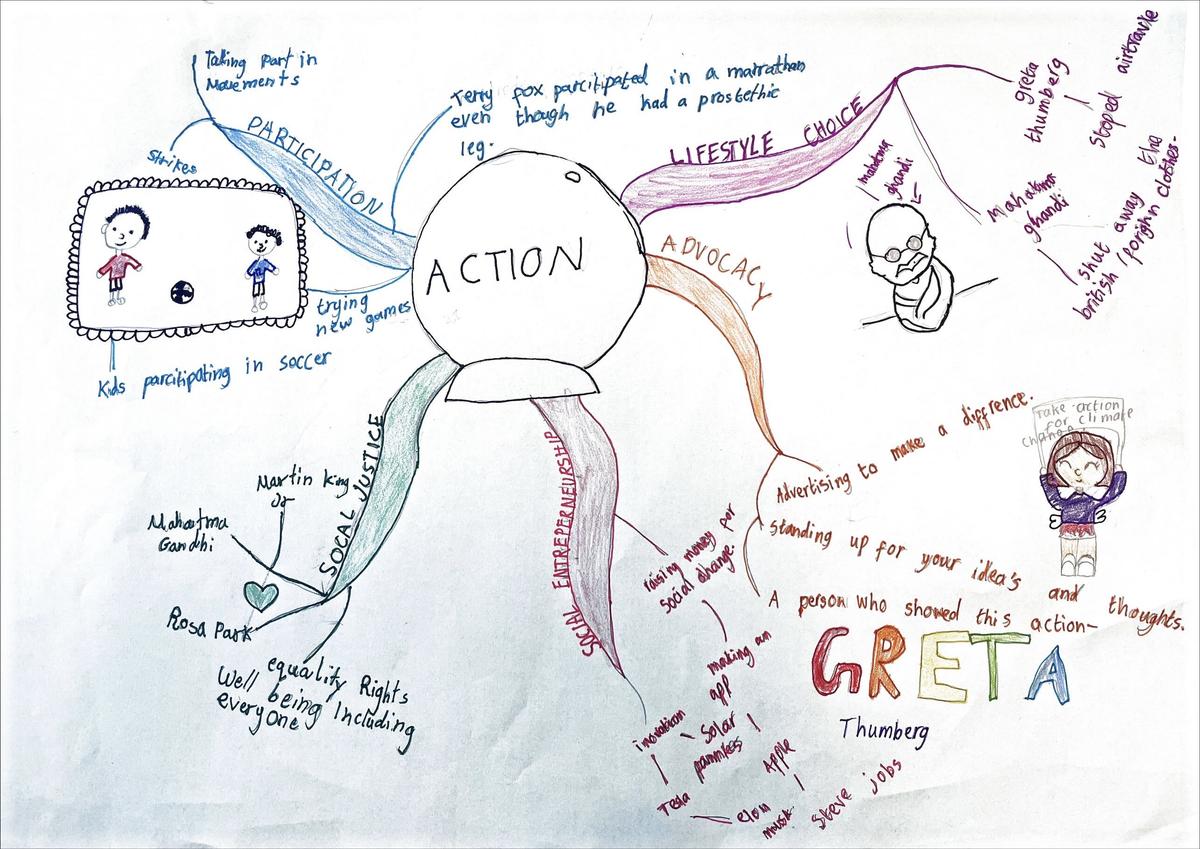 ACTION
PARTICIPATION
Taking Part in
Movements
Strikes
Terry fox parcitipated in a marrathan
even though he had a prostethic
leg.
trying
new games
Kids parcitipating in soccer
LIFESTYLE CHOICE
greta
thumberg
Stoped airtravle
mahatma
ghandi
shut away the
british / forghn clothes.
mahatma
ghandi
ADVOCACY
Advertising to make a diffrence.
Standing up for your idea's and thoughts.
A person who showed this action-
GRETA
Thumberg
Take action
for climate
change
SOCIAL ENTREPERNEURSHIP
raising money for
social change.
making an
app
Apple
Steve jobs
inovation
Solar
pannles
Tesla
elon
musk
SOCAL JUSTICE
Martin King
Jr
Mahatma
Gandhi
Rosa Park
equality Rights
Well being Including
everyone